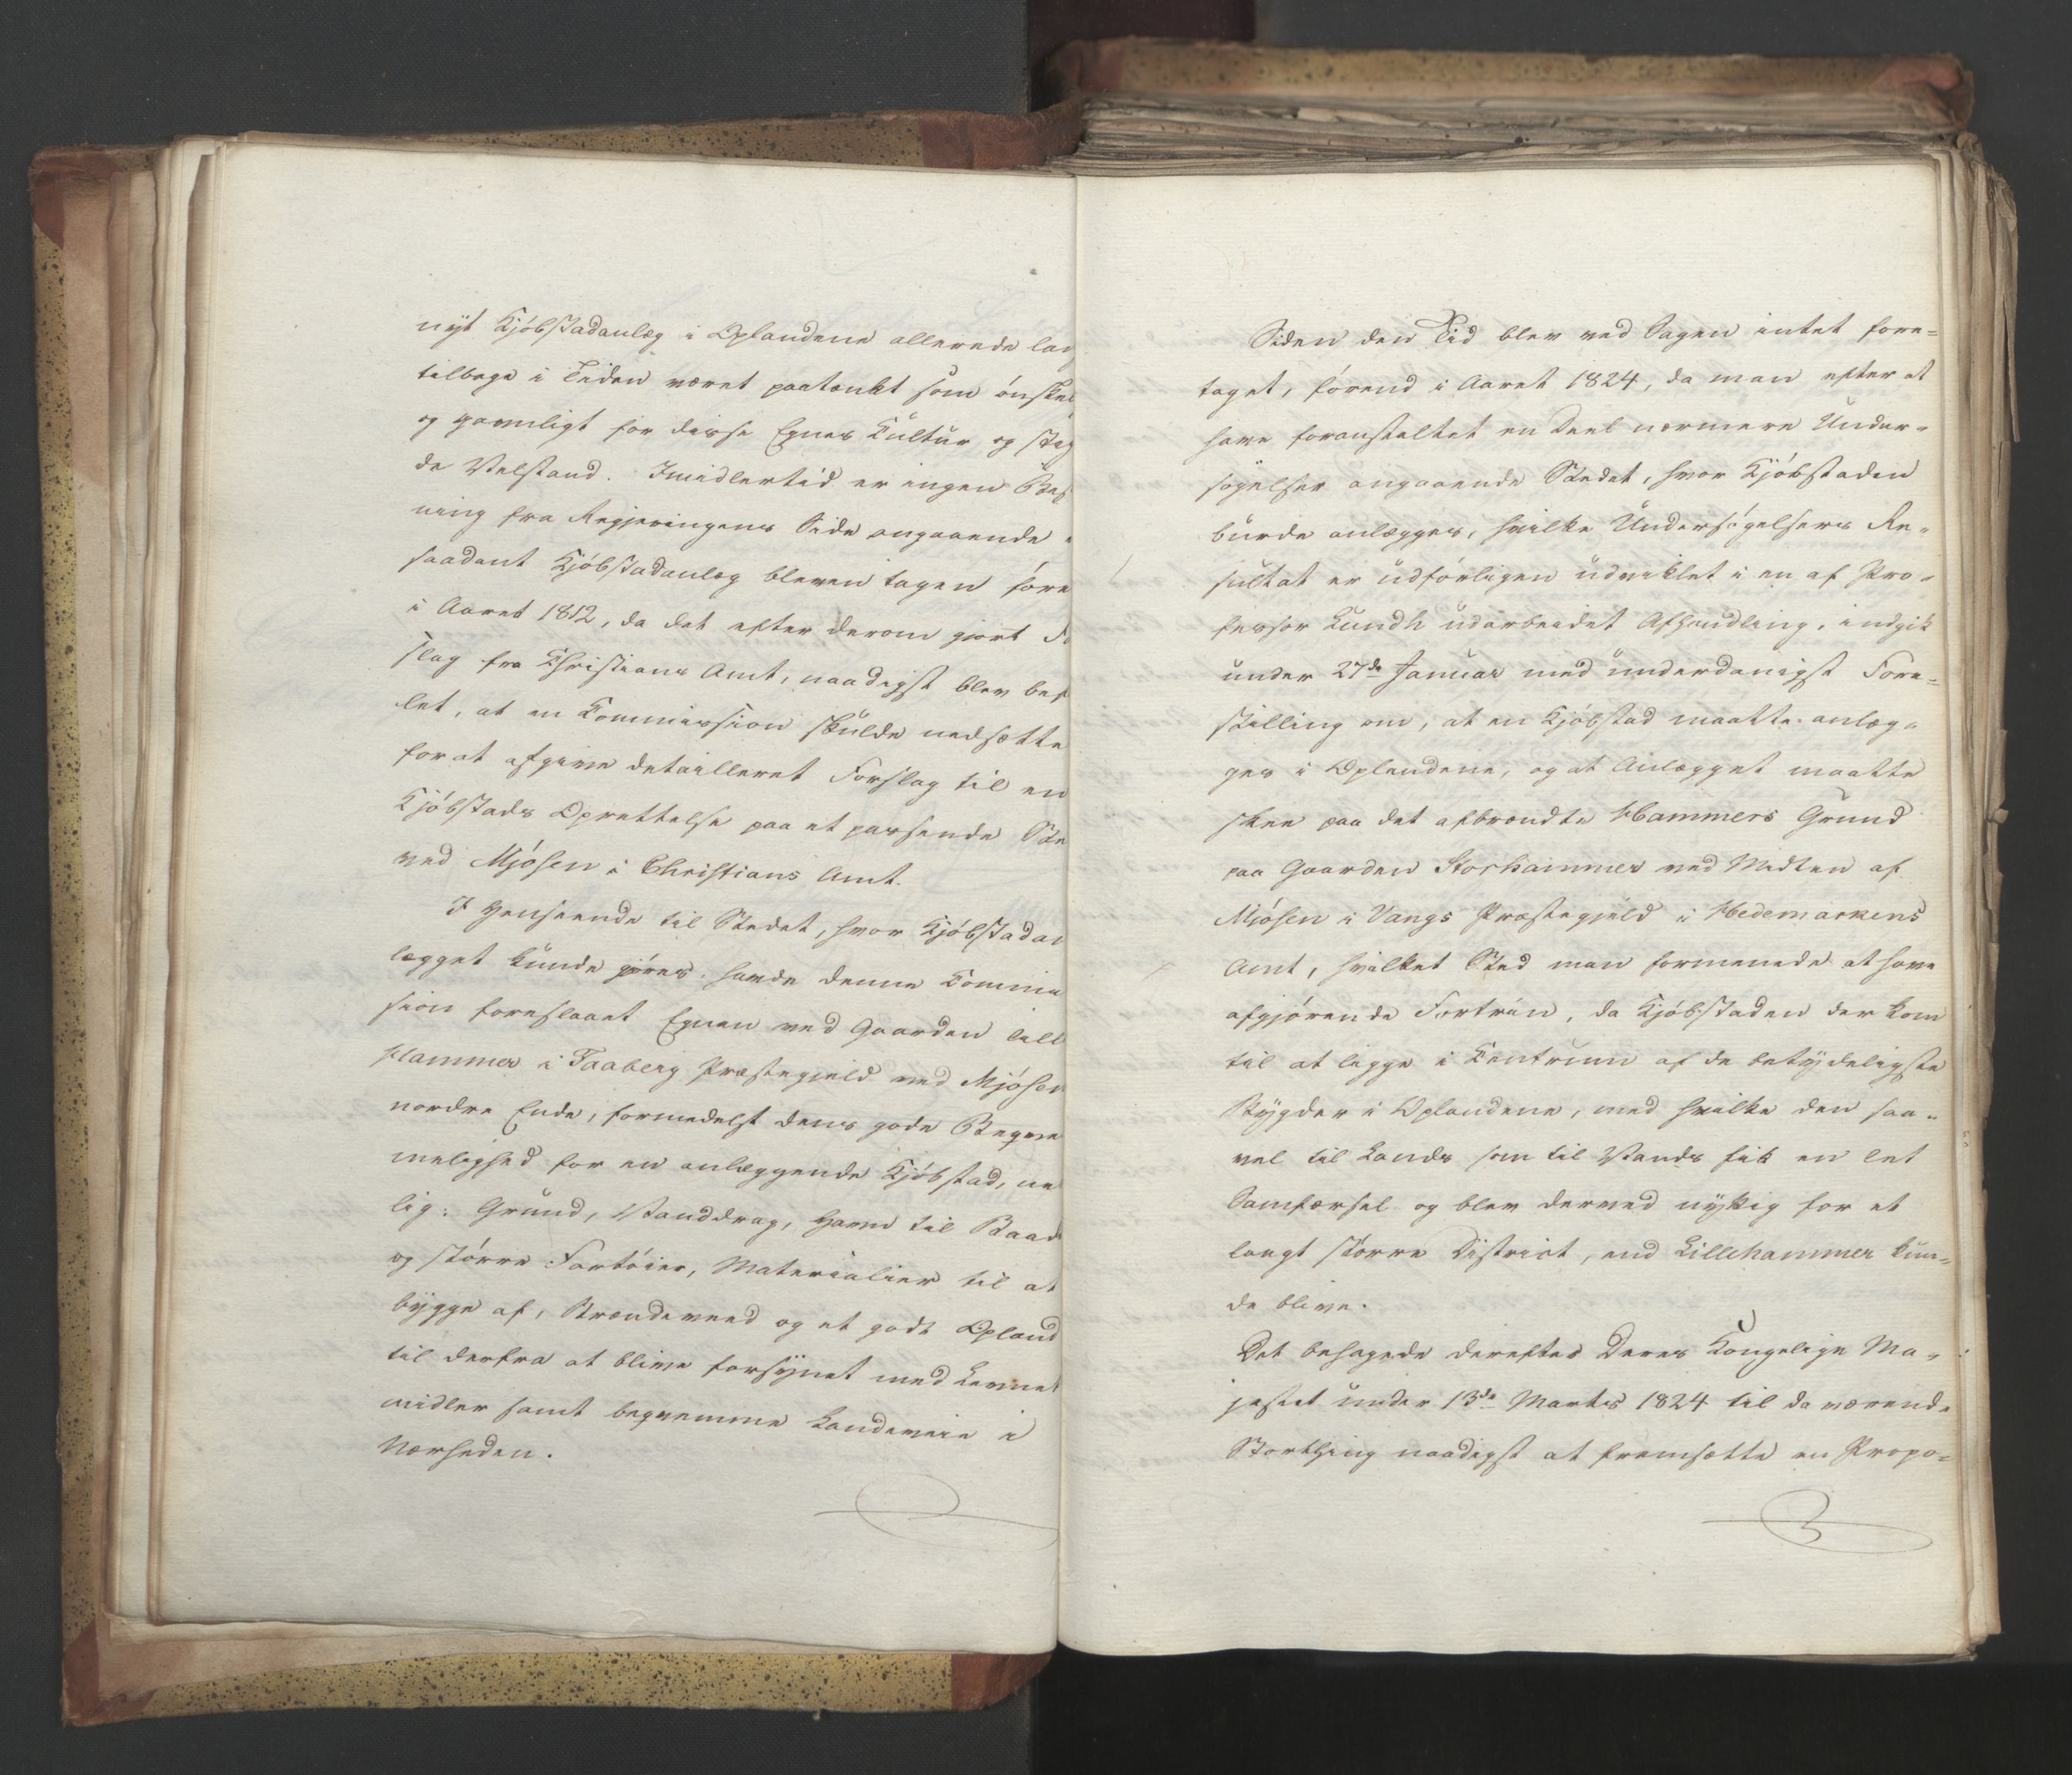 nyt Kjöbstadanlæg i Oplandene allerede lan
tilbage i Tiden været paatænkt som ønske
og gavnligt for disse Egnes Kultur og stig
de Velstand. Imidlertid er ingen Bes
ning fra Regjeringens Side angaaende
saadant Kjöbstadanlæg bleven tagen före
i Aaret 1812, da det efter derom gjort Fo
slag fra Christians Amt, naadigst blev bef
let, at en Commission skulde nedsættes
for at afgive detailleret Forslag til en
Kjöbstads Oprettelse paa et passende Ste
ved Mjösen i Christians Amt.
I Henseende til Stedet, hvor Kjöbstadan
lægget kunde gjöres, havde denne Commis
sion foreslaaet Egnen ved Gaarden Lille
Hammer i Faaberg Præstegjeld ved Mjösen
nordre Ende, formedelst dens gode Beqve
melighed for en anlæggende Kjöbstad, ne
lig: Grund, Vanddrag, Havn til Baade
og större Fartöier, Materialier til at
bygge af, Brændeveed og et godt Opland
til derfra at blive forsynet med Levnet
midler samt beqvemme Landeveie i
Nærheden.
Siden den Tid blev ved Sagen intet fore-
taget, förend i Aaret 1824, da man efter at
have foranstaltet en Deel nærmere Under-
sögelser angaaende Stedet, hvor Kjöbstaden
burde anlægges, hvilke Undersögelsers Re-
sultat er udförligen udviklet i en af Pro-
fessor Lundh udarbeidet Afhandling, indgik
under 27de Januar med underdanigst Fore-
stilling om, at en Kjöbstad maatte anlæg-
ges i Oplandene, og at Anlægget maatte
skee paa det afbrændte Hammers Grund
paa Gaarden Storhammer ved Midten af
Mjösen i Vangs Præstegjeld i Hedemarkens
Amt, hvilket Sted man formenede at have
afgjörende Fortrin, da Kjöbstaden der kom
til at ligge i Centrum af de betydeligste
Bygder i Oplandene, med hvilke den saa-
vel til Lands som til Vands fik en let
Samfærsel og blev derved nyttig for et
langt större District, end Lillehammer kun-
de blive.
Det behagede derefter Deres Kongelige Ma-
jestæt under 13de Marts 1824 til da værende
Storthing naadigst at fremsætte en Propo-